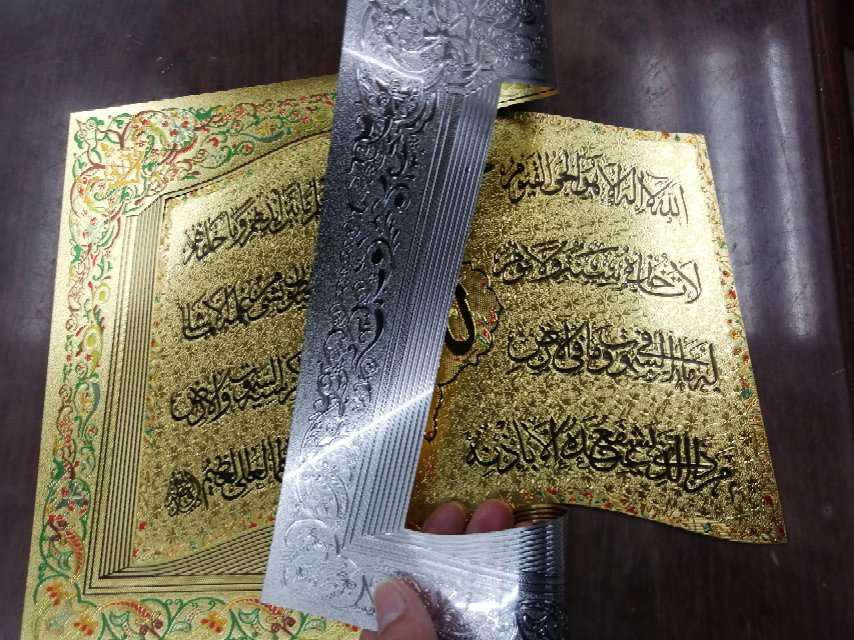 الله لا إله إلا هو الحي القيوم
لا تأخذه سنة ولا نوم
له ما في السموات وما في الأرض
من ذا الذي يشفع عنده إلا بإذنه
بين أيديهم وما خلفهم
بشيء من علمه إلا بما شا
السموات والأرض
العلي العظيم